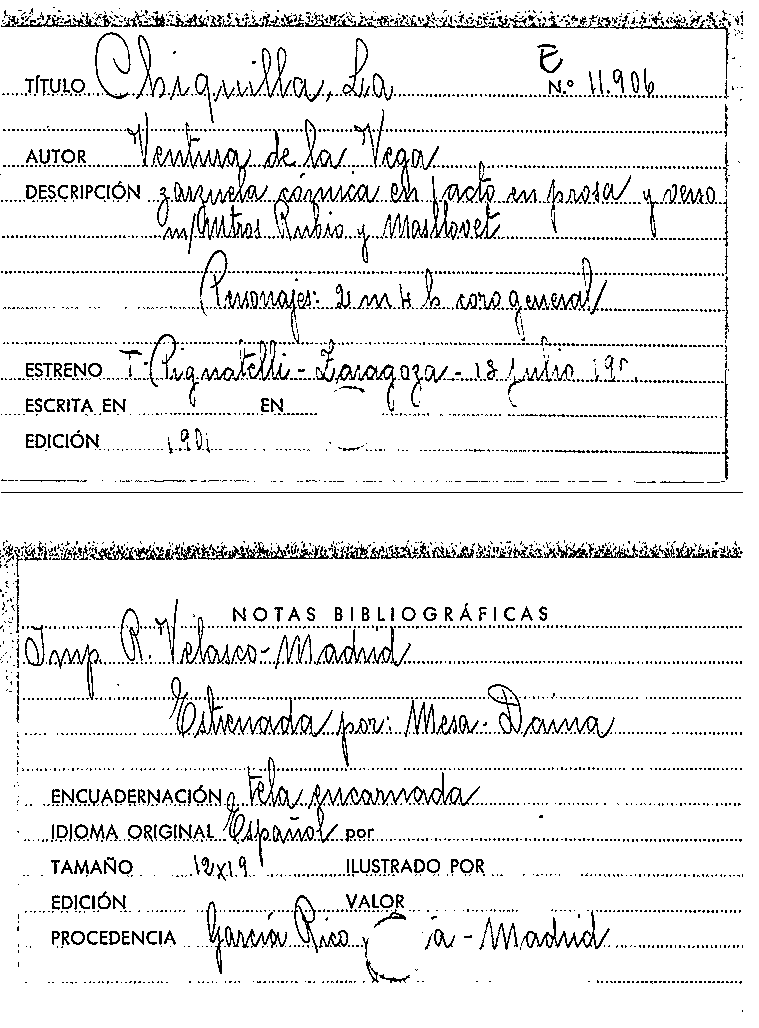 E
TÍTULO Chiquilla, La N.º 11.906
AUTOR Ventura de la Vega
DESCRIPCIÓN zarzuela cómica en 1 acto en prosa y verso
m/ Mtros Rubio y Masllovet
Personajes: 2 m 4 h coro general
ESTRENO T. Pignatelli - Zaragoza - 13 julio 190
ESCRITA EN EN
EDICIÓN 1901
NOTAS BIBLIOGRÁFICAS
Imp R. Velasco - Madrid
Estrenada por: Mesa -
ENCUADERNACIÓN tela encarnada
IDIOMA ORIGINAL Español por
TAMAÑO 12x19 ILUSTRADO POR
EDICIÓN VALOR
PROCEDENCIA García Rico y Cía - Madrid